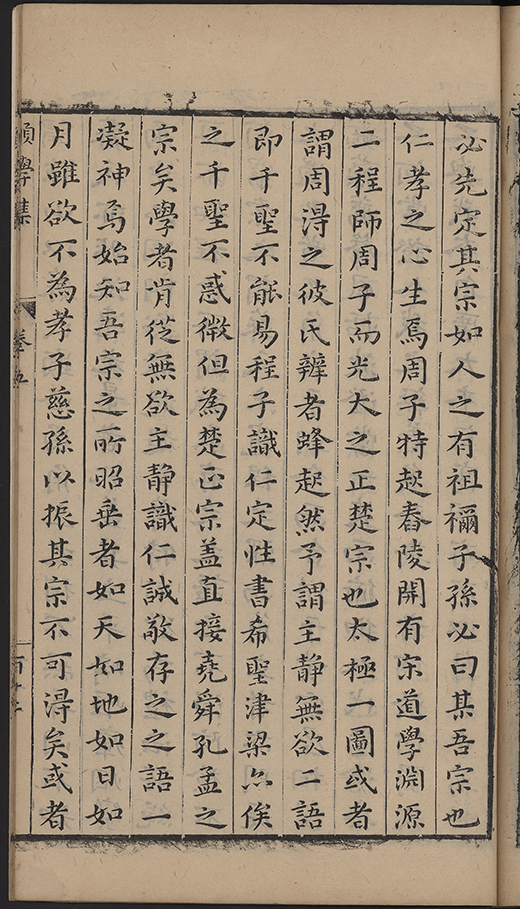 必先定其宗如人之有祖禰子孫必曰某吾宗也
仁孝之心生焉周子特起舂陵開有宋道學淵源
二程師周子而光大之正楚宗也太極一圖或者
謂周得之彼氏辨者蜂起然予謂主靜無欲二語
即千聖不能易程子識仁定性書希聖津梁亦俟
之千聖不惑微但為楚正宗盖直接堯舜孔孟之
宗矣學者肯從無欲主靜識仁誠敬存之之語一
凝神焉始知吾宗之所昭垂者如天如地如日如
月雖欲不為孝子慈孫以振其宗不可得矣或者
學集 卷五